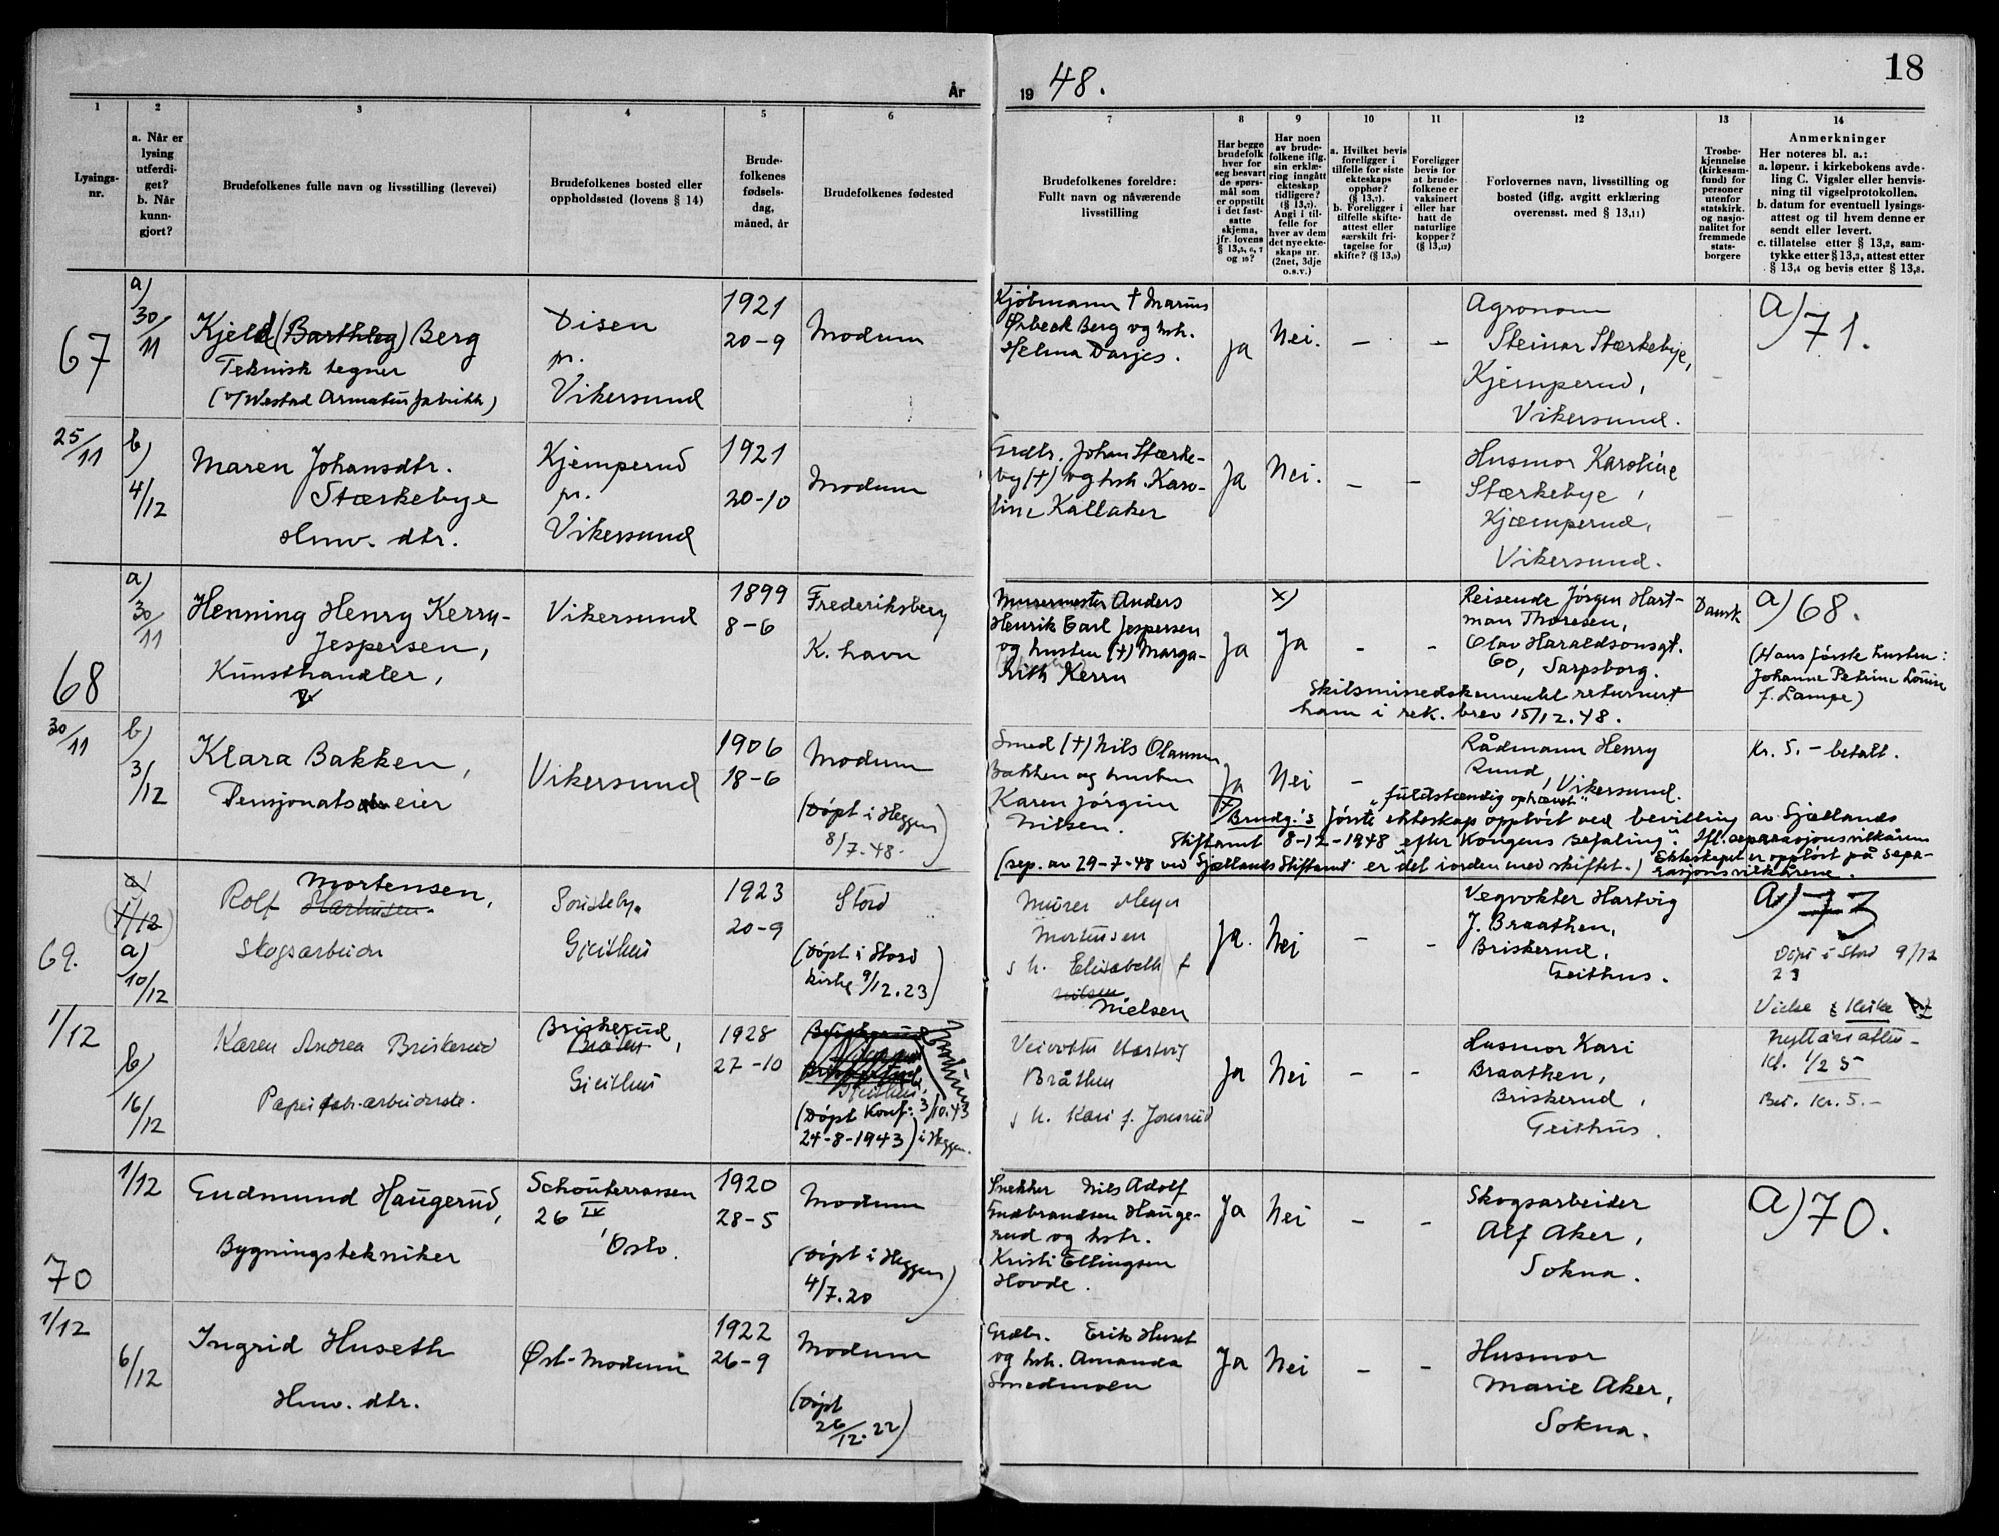 18
År 1948.
1
Lysings-
nr.
2
a. Når er
lysing
utferdi-
get?
b. Når
kunn-
gjort?
3
Brudefolkenes fulle navn og livsstilling (levevei)
4
Brudefolkenes bosted eller
oppholdssted (lovens § 14)
5
Brude-
folkenes
fødsels-
dag,
måned, år
6
Brudefolkenes fødested
7
Brudefolkenes foreldre:
Fullt navn og nåværende
livsstilling
8
Har begge
brudefolk
hver for
seg besvart
de spørs-
mål som
er oppstilt
i det fast-
satte
skjema,
jfr. lovens
§ 13,5, 6, 7
og 10?
9
Har noen
av brude-
folkene iflg.
sin erklæ-
ring inngått
ekteskap
tidligere?
(§ 13,7).
Angi i til-
felle for
hver av dem
det nye ekte-
skaps nr.
(2net, 3dje
o.s.v.)
10
a. Hvilket bevis
foreligger i
tilfelle for siste
ekteskaps
opphør?
(§ 13,7).
b. Foreligger i
tilfelle skifte-
attest eller
særskilt fri-
tagelse for
skifte? (§ 13,9)
11
Foreligger
bevis for
at brude-
folkene er
vaksinert
eller har
hatt de
naturlige
kopper?
(§ 13,12)
12
Forlovernes navn, livsstilling og
bosted (iflg. avgitt erklæring
overensst. med § 13,11)
13
Trosbe-
kjennelse
(kirkesam-
fund) for
personer
utenfor
statskirk.
og nasjo-
nalitet for
fremmede
stats-
borgere
14
Anmerkninger
Her noteres bl. a.:
a. løpenr. i kirkebokens avde-
ling C. Vigsler eller henvis-
ning til vigselprotokollen.
b. datum for eventuell lysings-
attest og til hvem denne er
sendt eller levert.
c. tillatelse etter § 13,2, sam-
tykke etter § 13,3, attest etter
§ 13,4 og bevis etter § 13,8.
67
25/11
a)
30/11
Kjeld (Barthleg) Berg
Teknisk tegner
(v/ Westad Armaturfabrikk)
Disen
pr.
Vikersund
1921
20-9
Modum
Kjøbmann † Marius
Ørbeck Berg og hsh.
Helma Darjes.
Ja
Nei.
–
–
Agronom
Steinar Stærkebye,
Kjemperud,
Vikersund.
–
a) 71.
b)
4/12
Maren Johansdtr.
Stærkebye
Hmv. dtr.
Kjemperud
pr.
Vikersund
1921
20-10
Modum
Grdbr. Johan Stærke-
by (†) og hsh. Karo-
line Kallaker
Ja
Nei.
–
–
Husmor Karoline
Stærkebye,
Kjæmperud,
Vikersund.
–
68
30/11
a)
30/11
Henning Henry Kerrn-
Jespersen,
Kunsthandler,
Vikersund
1899
8-6
Frederiksberg
K.havn
Murermester Anders
Henrik Carl Jespersen
og hustru (†) Marga-
rith Kerrn
Ja
x)
Ja
–
–
Reisende Jørgen Hart-
man Thoresen,
Olav Haraldsonsgt.
60, Sarpsborg.
Dansk
a) 68.
(Hans første hustru:
Johanne Petrine Louise
f. Lampe)
Skilsmissedokumentet returnert
ham i rek. brev 15/12.48.
b)
3/12
Klara Bakken,
Pensjonatseier
Vikersund
1906
18-6
Modum
(Døpt i Heggen
8/7.48.)
Smed (†) Nils Olaussen
Bakken og hustru
Karen Jørgine
Nilsen.
Ja
Nei
–
Rådmann Henry
Rund, Vikersund.
Kr. 5.- betalt.
"fuldstændig ophævet"
x) Brudg.'s første ekteskap oppløst ved bevilling av Sjællands
Stiftamt 8-12-1948 "efter Kongens Befaling". Ifl. separasjonsvilkårene
(sep. av 29-7-48 ved Sjællands Stiftamt er det i orden med skiftet.) Ekteskapet er oppløst på sepa-
rasjonsvilkårene.
69.
1/12
a)
1/12
a)
10/12
Rolf Mortensen,
Skogsarbeider
Geithus
1923
20-9
Stord
(Døpt i Stord
kirke 9/12.23)
Murer Meyer
Mortensen
s h. Elisabeth f
Nilsen
Nielsen
Ja.
Nei
–
–
Vegvokter Hartvig
J. Braathen,
Briskerud,
Geithus.
a) 73
Døpt i Stord 9/12
23
b)
16/12
Karen Andrea Briskerud
Papirfabr.arbeiderske.
Briskerud,
Bråten
Geithus
1928
27-10
Modum
(Døpt Konf: 3/10.43
24-8-1943) i Heggen.
Veivokter Hartvig
Bråthen
s h. Kari f. Jonsrud
Ja
Nei
–
–
Husmor Kari
Braathen,
Briskerud,
Geithus.
Nyttårsaften-
Kl. 1/2 5
Bet. Kr. 5.-
70
1/12
1/12
Gudmund Haugerud,
Bygningstekniker
Schouterrassen
26 IV,
Oslo.
1920
28-5
Modum
(Døpt i Heggen
4/7.20)
Snekker Nils Adolf
Gudbrandsen Hauge-
rud og hstr.
Kristi Ellingsen
Hovde.
Ja
Nei
–
–
Skogsarbeider
Alf Aker,
Sokna.
a) 70.
6/12
Ingrid Huseth
Hmv. dtr.
Øst-Modum
1922
26-9
Modum
(Døpt
26/12.22)
Grdbr. Erik Huset
og hsh. Amanda
Smedmoen
Ja
Nei
–
–
Husmor
Marie Aker,
Sokna.